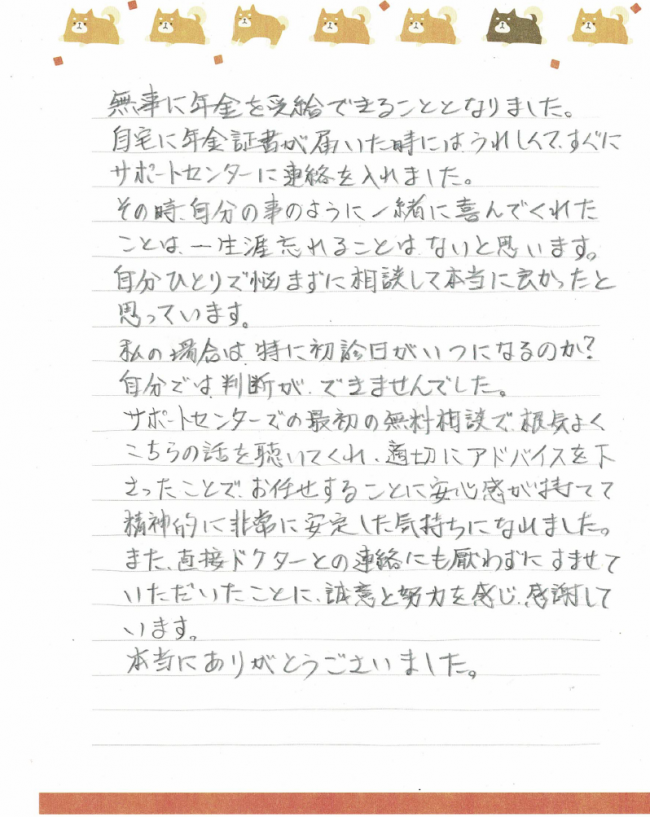 無事に年金を受給できることとなりました。
自宅に年金証書が届いた時には、うれしくて、すぐに
サポートセンターに連絡を入れました。
その時、自分の事のように一緒に喜んでくれた
ことは、一生涯忘れることはないと思います。
自分ひとりで悩まずに相談して本当に良かったと
思っています。
私の場合は、特に初診日がいつになるのか?
自分では判断ができませんでした。
サポートセンターでの最初の無料相談で、根気よく
こちらの話を聴いてくれ、適切にアドバイスを下
さったことで、お任せすることに安心感が持てて
精神的に非常に安定した気持ちになれました。
また、直接ドクターとの連絡にも厭わずにすませて
いただいたことに、誠意と努力を感じ、感謝して
います。
本当にありがとうございました。